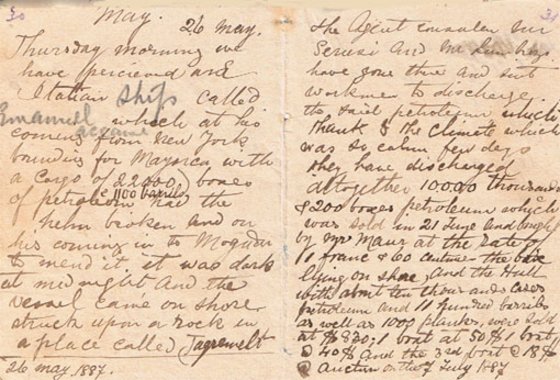 30
May. 26 may.
Thursday morning we
have percieved an
Italian ship called
Emanuel
which at his
coming from New York
bounding for Majorca with
a cargo of 22000 boxes
& 1100 barrils
of petroleum had the
helm broken and on
his coming in to Mogador
to mend it, it was dark
at mid night and the
vessel came on shore
struck upon a rock in
a place called Tagrewelt
26 may 1887.
30
The Agent consular Mr
and Mr
have gone there and sent
workmen to discharge
the said petroleum which
thank to the climate which
was so calm few days
they have discharged
altogether 10000 thousands
& 200 boxes petroleum which
was sold in 21 June and bought
by Mr Maur at the Rate of
1 franc & 60 centime the box
lying on shore, and the Hull
with about ten thousand cases
petroleum and 11 hundred barribs
as well as 1000 planks, were sold
at $ 830, 1 boat at 50 $ 1 boat
@ 40 $ and the 3rd boat @ 18 $
@ Auction on the 7 July 1887